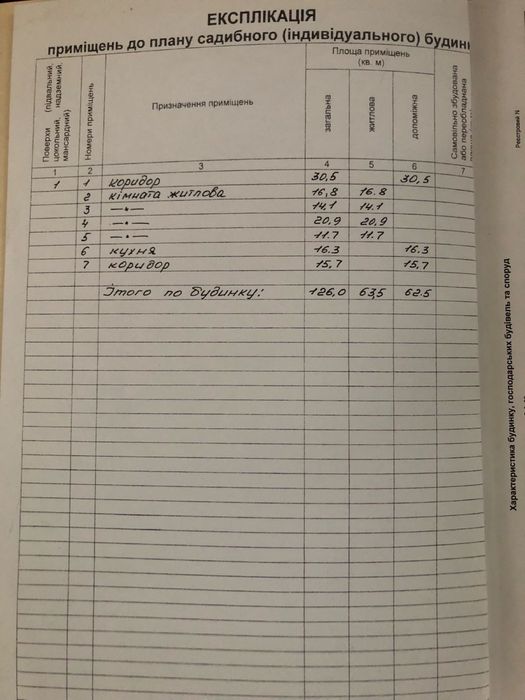 ЕКСПЛІКАЦІЯ
приміщень до плану садибного (індивідуального)
Поверхи (підвальний, цокольний, надземний, мансардний)
Номери приміщень
Призначення приміщень
Площа приміщень (кв. м)
загальна
житлова
допоміжна
Самовільно збудована або переобладнана
1 2 3 4 5 6 7
1 1 коридор 30,5 30,5
2 кімната житлова 16,8 16.8
3 —"— 14.1 14.1
4 —"— 20,9 20,9
5 —"— 11.7 11.7
6 кухня 16.3 16.3
7 коридор 15,7 15,7
Итого по будинку: 126,0 63,5 62.5
Реєстровий N
Характеристика будинку, господарських будівель та споруд